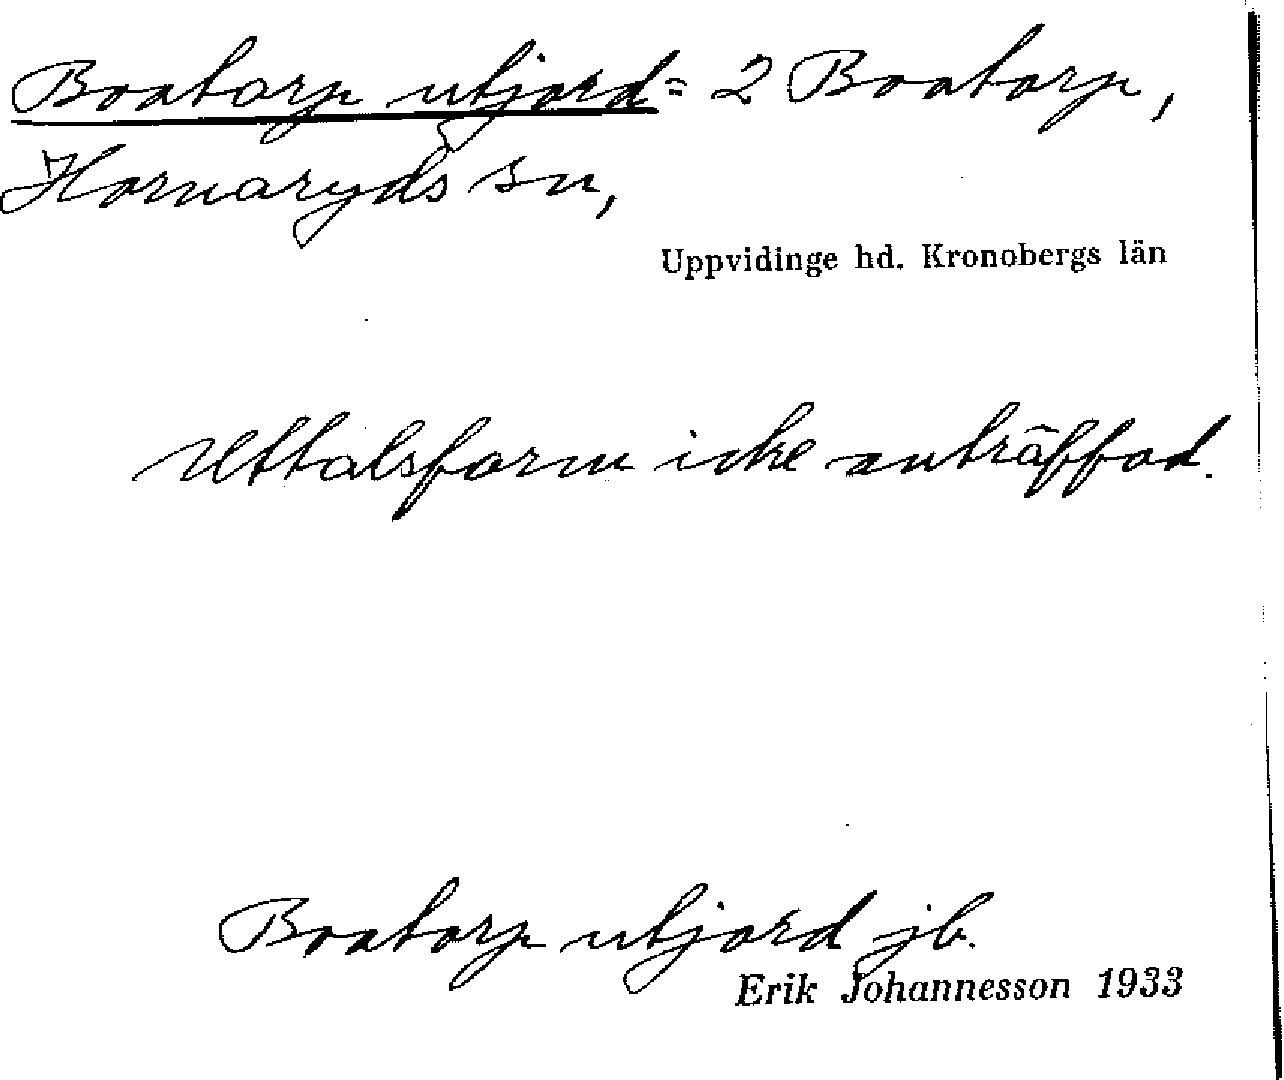 Boatorp utjord = 2 Boatorp,
Hornaryds sn,
Uppvidinge hd. Kronobergs län
Uttalsform icke anträffad.
Boatorp utjord jb.
Erik Johannesson 1933